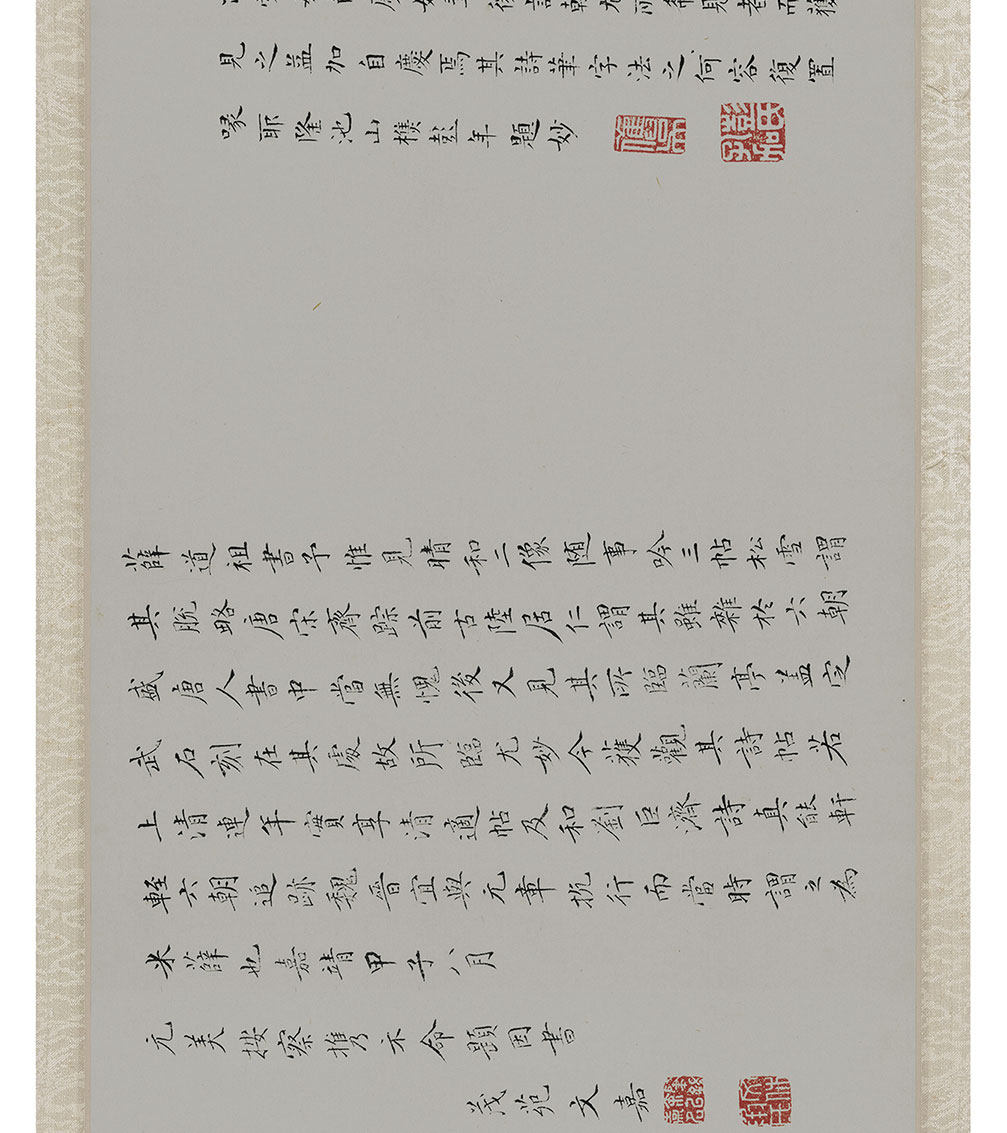 希見者而獲
見之益加自慶焉其詩筆字法之何容復置
喙耶隆池山樵彭年題妙
薛道祖書予惟見晴和二像随事吟三帖松雪謂
其脫略唐宋齊踪前古陸居仁謂其雖雜於六朝
盛唐人書中當無愧後又見其所臨蘭亭盖定
武石刻在其處故所臨尤妙今獲觀其詩帖若
上清連年實享清適帖及和劉巨濟詩真能軒
輊六朝追跡魏晉宜與元章抗行而當時謂之為
米薛也嘉靖甲子八月
元美按察携示命題因書
茂苑文嘉